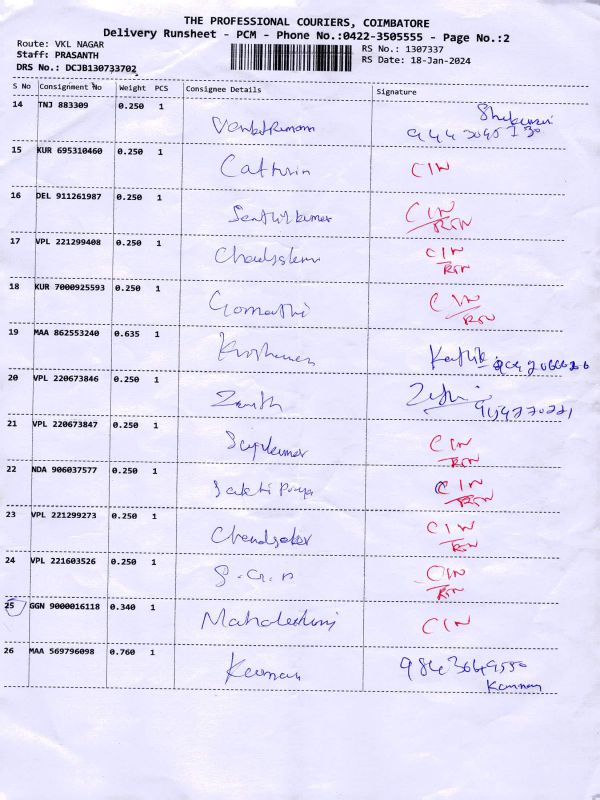 THE PROFESSIONAL COURIERS, COIMBATORE
Delivery Runsheet - PCM - Phone No.:0422-3505555 - Page No.:2
Route: VKL NAGAR
Staff: PRASANTH
DRS No.: DCJB130733702
RS No.: 1307337
RS Date: 18-Jan-2024
S No Consignment No Weight PCS Consignee Details Signature
14 TNJ 883309 0.250 1
15 KUR 695310460 0.250 1 CIN
16 DEL 911261987 0.250 1 Senthilkumar CIN
RTN
17 VPL 221299408 0.250 1 CIN
RTN
18 KUR 7000925593 0.250 1 Gomathi CIN
RTN
19 MAA 862553240 0.635 1
20 VPL 220673846 0.250 1 Zenith
21 VPL 220673847 0.250 1 CIN
RTN
22 NDA 906037577 0.250 1 Sakthi Priya CIN
RTN
23 VPL 221299273 0.250 1 Chandrasekar CIN
RTN
24 VPL 221603526 0.250 1 CIN
RTN
25 GGN 9000016118 0.340 1 Mahalakshmi CIN
26 MAA 569796098 0.760 1 Kannan
Kannan